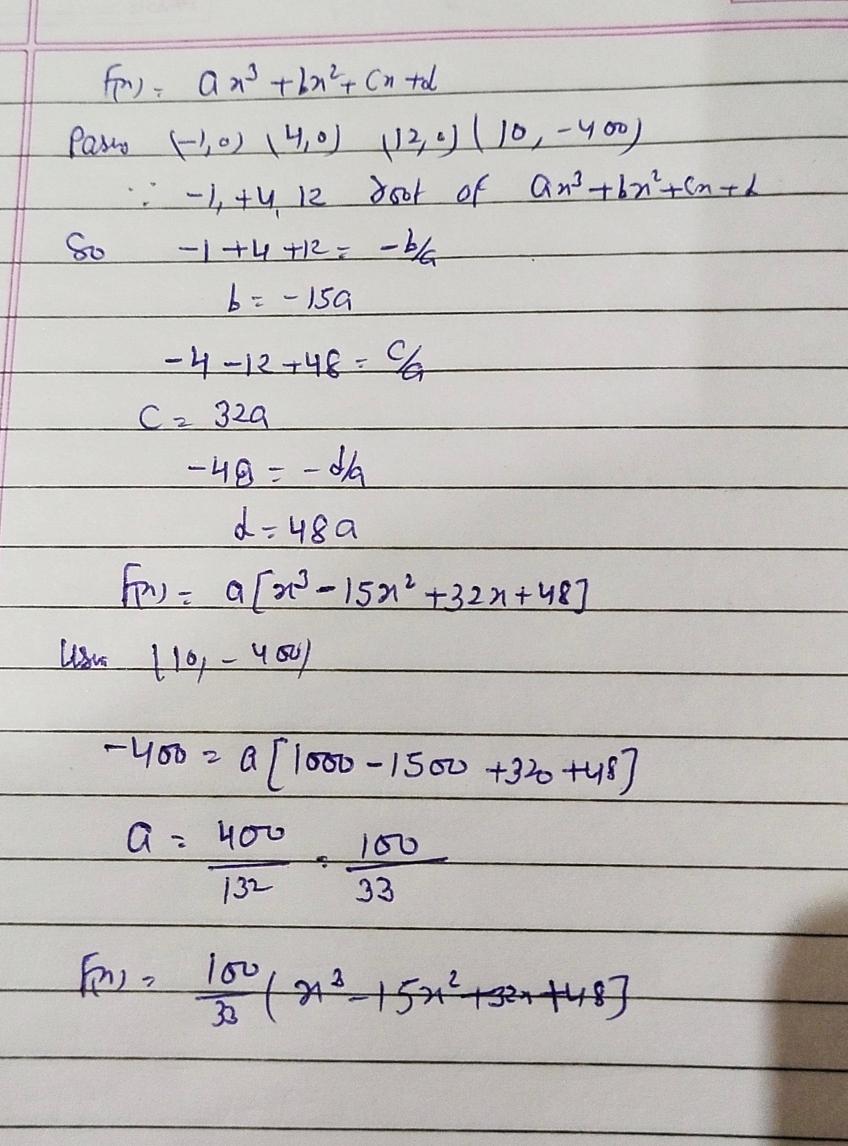 f(x) = ax³ + bx² + cx + d
Pass (-1,0) (4,0) (12,0) (10, -400)
∵ -1, +4, 12 root of ax³ + bx² + cx + d
So -1 + 4 + 12 = -b/a
b = -15a
-4 - 12 + 48 = c/a
C = 32a
-48 = -d/a
d = 48a
f(x) = a[x³ - 15x² + 32x + 48]
(10, -400)
-400 = a[1000 - 1500 + 320 + 48]
a = 400/132 = 100/33
f(x) = 100/33 (x³ - 15x² + 32x + 48]